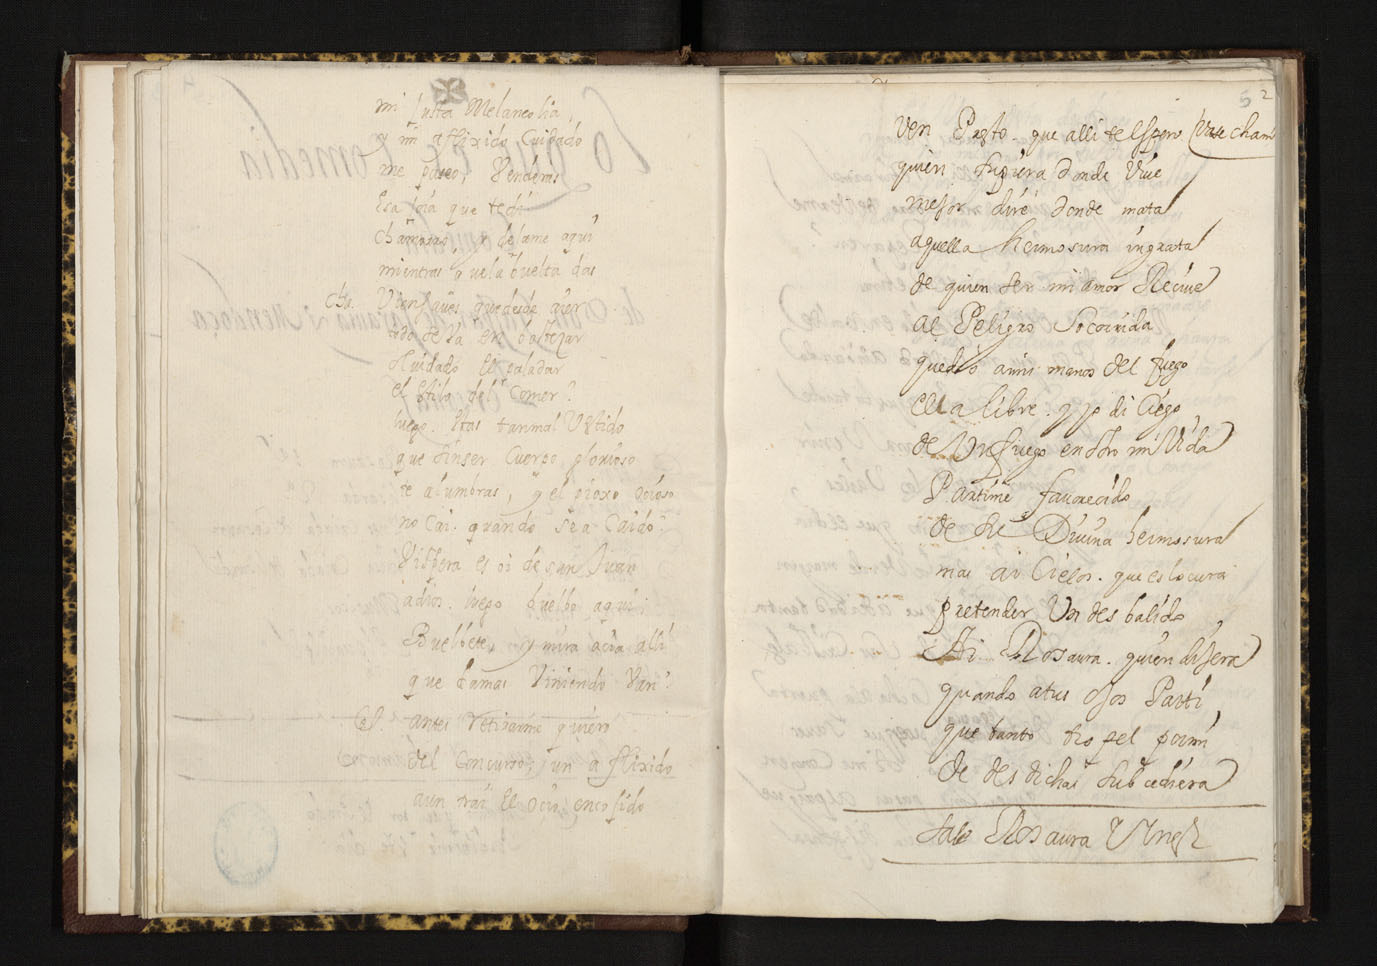 mi justa Melancolia,
y mi aflixido Cuidado
me paseo, Venderas
Esa joia que te di
chamaras y dejame aqui
mientras que la buelta das
cha. Vien pues que desde aier
en bostezar
olvidado El paladar
el estilo del Comer?
luego. Estas tan mal Vestido
que sin ser Cuerpo glorioso
te alumbras, y el picaro ocioso
no Cai. quando sea Caido.
Vispera es oi de san Juan
adios. luego buelbo aqui
Buelbete, y mira acia alli
que Damas Viniendo Van?
antes retirarme quiero
del Concurso, que un aflixido
aun trai El Ocio encojido
5 2
Ven Presto. que alli te Espero Vase cham
quien supiera donde Vive
mejor diré donde mata
aquella hermosura ingrata
de quien ser mi amor Recive
al Peligro Socorrida
quedó a mis manos del fuego
ella libre. y yo di Ciego
de Un fuego en otro mi Vida
Partime favorecido
de su Divina hermosura
mas ai Cielos. que es locura
pretender Un desbalido
Ai Rosaura. quien dijera
quando a tus Ojos Parti,
que tanto tropel por mi
de desdichas subcediera
Sale Rosaura Y Ines